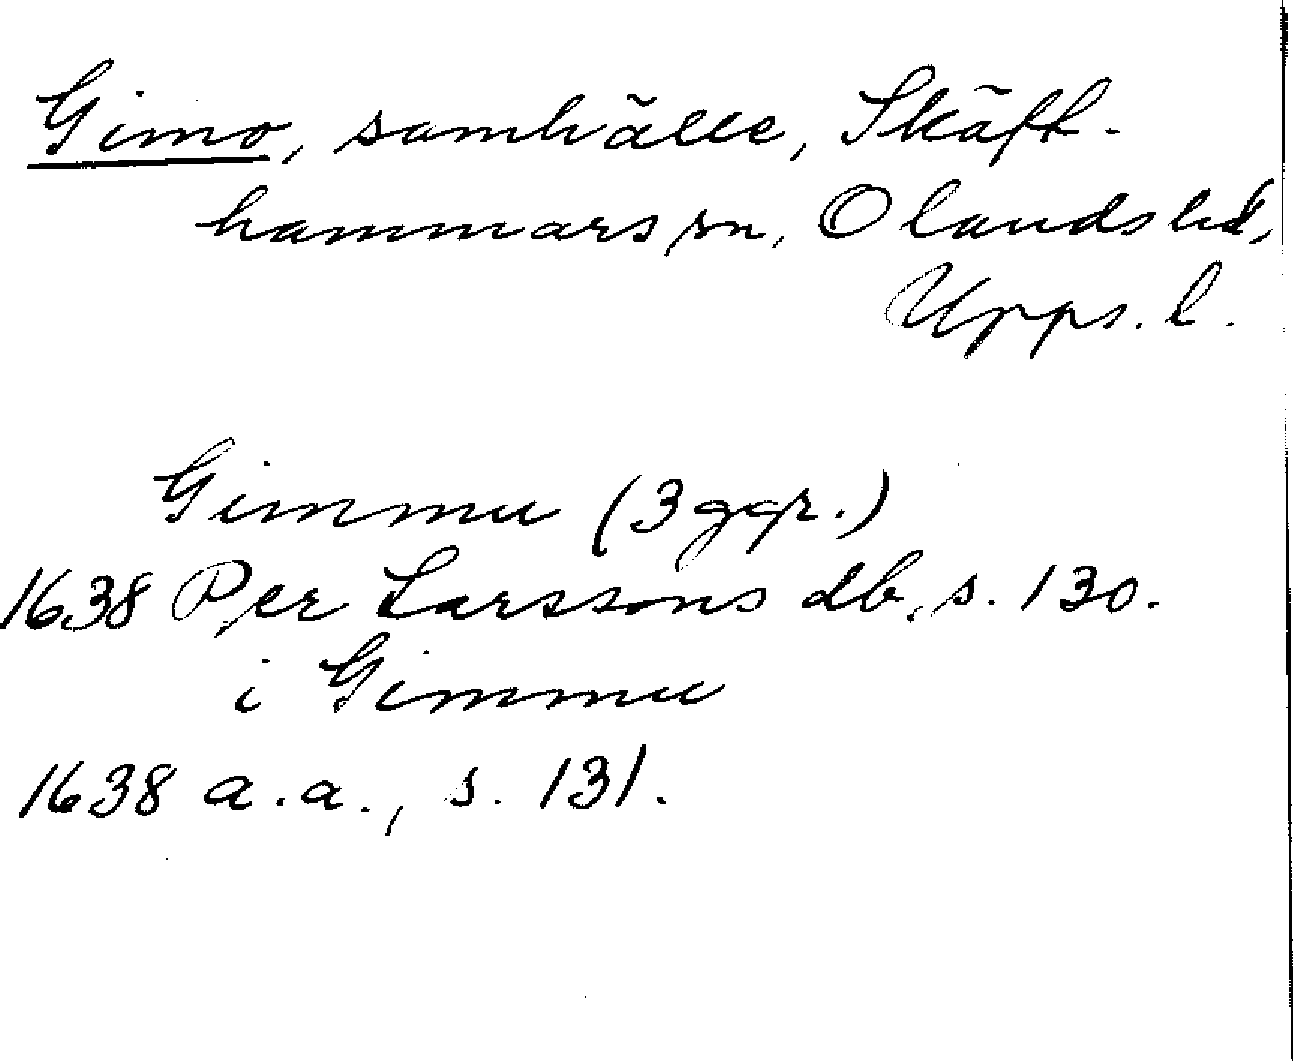 Gimo, samhälle, Skäft-
hammars sn, Olands hd,
Upps. l.
Gimmu (3 ggr.)
1638 Per Larssons db, s. 130.
i Gimmu
1638 a.a., s. 131.